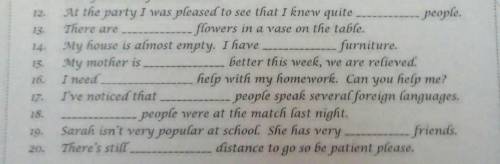 12. At the party I was pleased to see that I knew quite __________ people.
13. There are __________ flowers in a vase on the table.
14. My house is almost empty. I have __________ furniture.
15. My mother is __________ better this week, we are relieved.
16. I need __________ help with my homework. Can you help me?
17. I've noticed that __________ people speak several foreign languages.
18. __________ people were at the match last night.
19. Sarah isn't very popular at school. She has very __________ friends.
20. There's still __________ distance to go so be patient please.